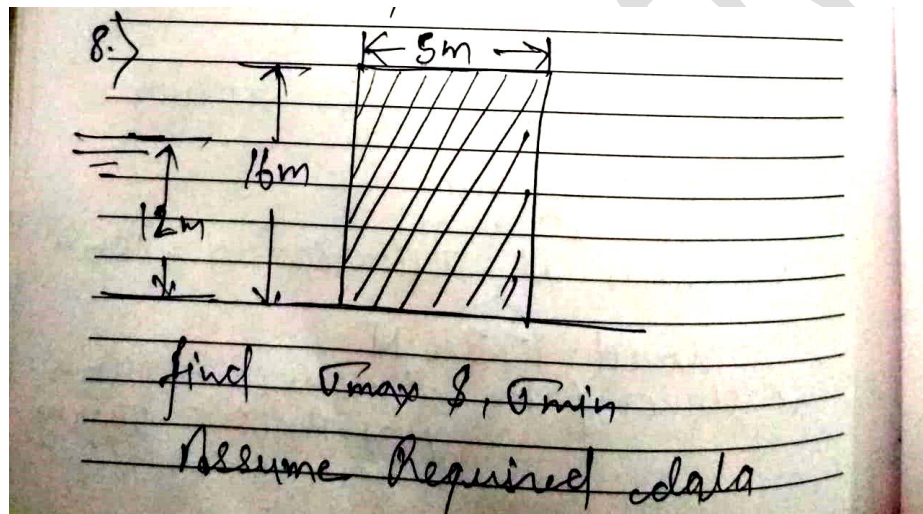 8.)
5m
16m
12m
find σmax &, σmin
Assume Required data